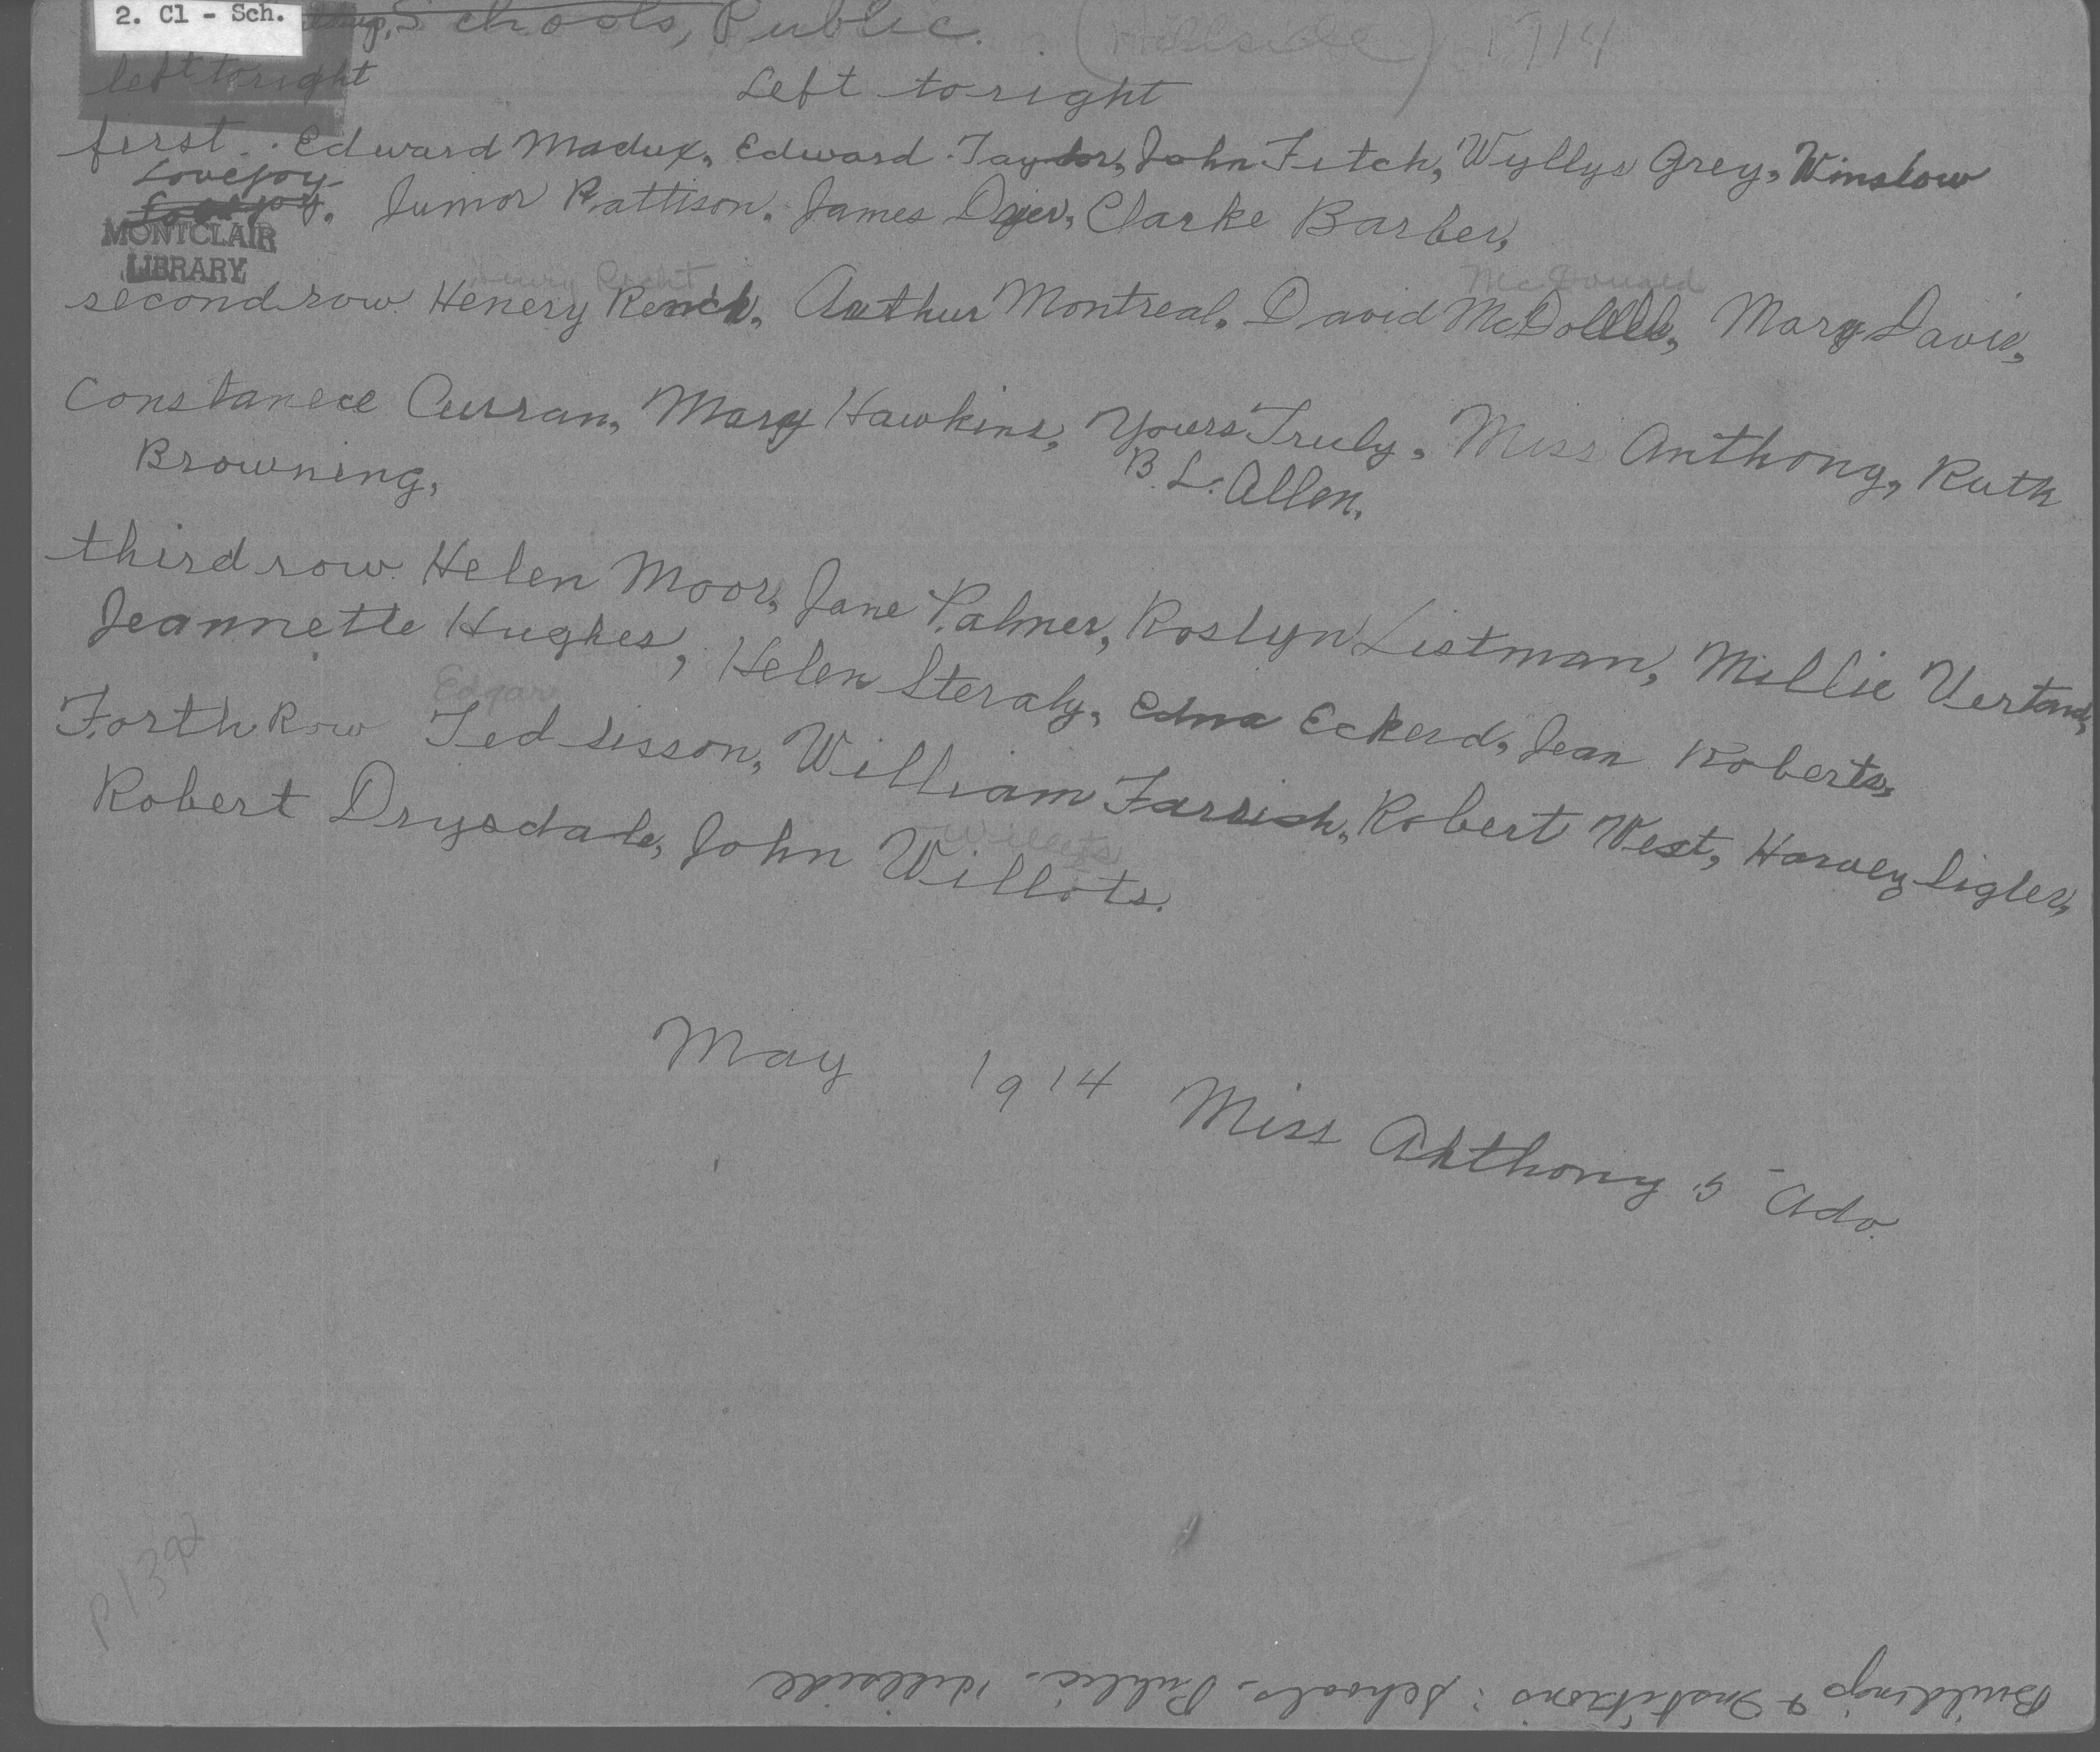 2. Cl - Sch.
Schools, Public. (Hillside) 1914
left to right
Left to right
first. Edward Madux, Edward Taylor, John Fitch, Wyllys Grey, Winslow
Lovejoy
Junior Pattison, James Dyer, Clarke Barber,
MONTCLAIR
LIBRARY
Henry
McDonald
second row. Henery Arthur Montreal, David Mary Davis,
Constanece Curran, Mary Hawkins, Yours Truly, Miss Anthony, Ruth
Browning, B. L. Allen,
third row. Helen Moor, Jane Palmer, Roslyn Listman, Millie
Jeannette Hughes, Helen Steraly, Edna Eckerd, Jean Roberts,
Edgar
Forth Row Ted Sisson, William Farrish, Robert West, Harvey Sigler,
Willets
Robert Drysdale, John Willots.
May 1914 Miss Anthony 5 Adv.
P1392
Buildings & Institutions: Schools - Public - Hillside